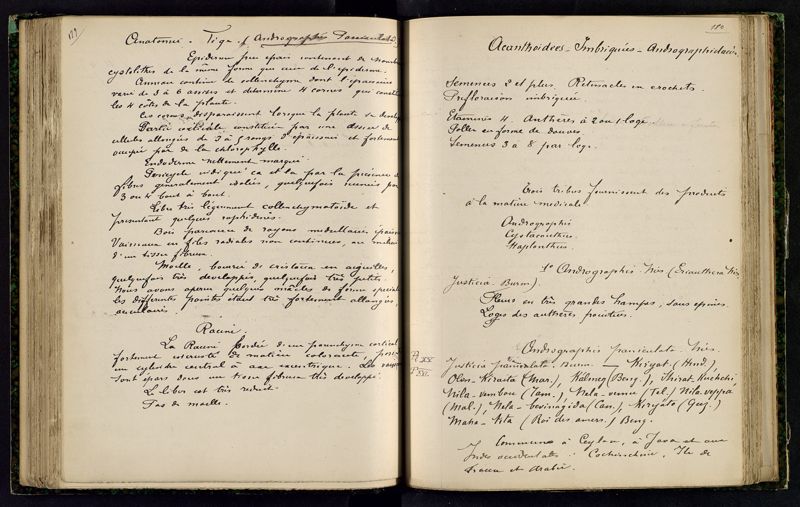 179
Anatomie. Tige. Andrographis Paniculata
Epiderme peu épais contenant de nombreux
cystolithes de la même forme que ceux de l'épiderme.
Anneau continu de collenchyme dont l'épaisseur
varie de 3 à 6 assises et détermine 4 cornes qui
les 4 côtés de la plante.
Ces cornes disparaissent lorsque la plante se
Partie corticale constituée par une dizaine de
cellules allongées de 3 à 5 rangs d'épaisseur et fortement
occupée par de la chlorophylle.
Endoderme nettement marqué.
Péricycle indiqué ça et là par la présence de
fibres généralement isolées, quelquefois réunies par
3 ou 4 bout à bout.
Liber très légèrement collenchymatoïde et
présentant quelques raphidines.
Bois parcouru de rayons médullaires épais
Vaisseaux en files radiales non continues, au milieu
d'un tissu fibreux.
Moelle bourrée de cristaux en aiguilles,
quelquefois très développés, quelquefois très petits.
Nous avons aperçu quelques mâcles de forme
les différentes pointes étant très fortement allongées,
aciculaires.
Racine.
La Racine bordée d'un parenchyme cortical
fortement incrusté de matière colorante,
un cylindre central à axe excentrique. Les
sont épars dans un tissu fibreux très développé.
Le liber est très réduit
Pas de moelle.
180
Acanthoidées - Imbriquées - Andrographidées
Semences 2 et plus. Rétinacles en crochets.
Préfloraison imbriquée.
Etamines 4. Anthères à 2 ou 1 loge.
Pollen en forme de douves.
Semences 3 à 8 par loge.
Trois tribus fournissent des produits
à la matière médicale
Andrographis
Cystacanthus.
Haplanthus.
1° Andrographis Nees (Erianthera Nees
Justicia Burm).
Fleurs en très grandes hampes, sans épines.
Loges des anthères pointues.
A XX
P XXI
Andrographis paniculata. Nees.
Justicia paniculata. Burm. — Kiryat (Hind),
Olen-Kiraita (Mar.), Kalmeg (Beng.), Shirat. Kuchchi,
Nila-vembou (Tam.), Nela-vemu (Tel.) Nila-veppa
(Mal.), Nela-bevinagida (Can.), Kiryato (Guz.)
Maha-tita (Roi des amers.) Beng.
Commune à Ceylan, à Java et aux
Indes occidentales. Cochinchine, Ile de
France et Arabie.